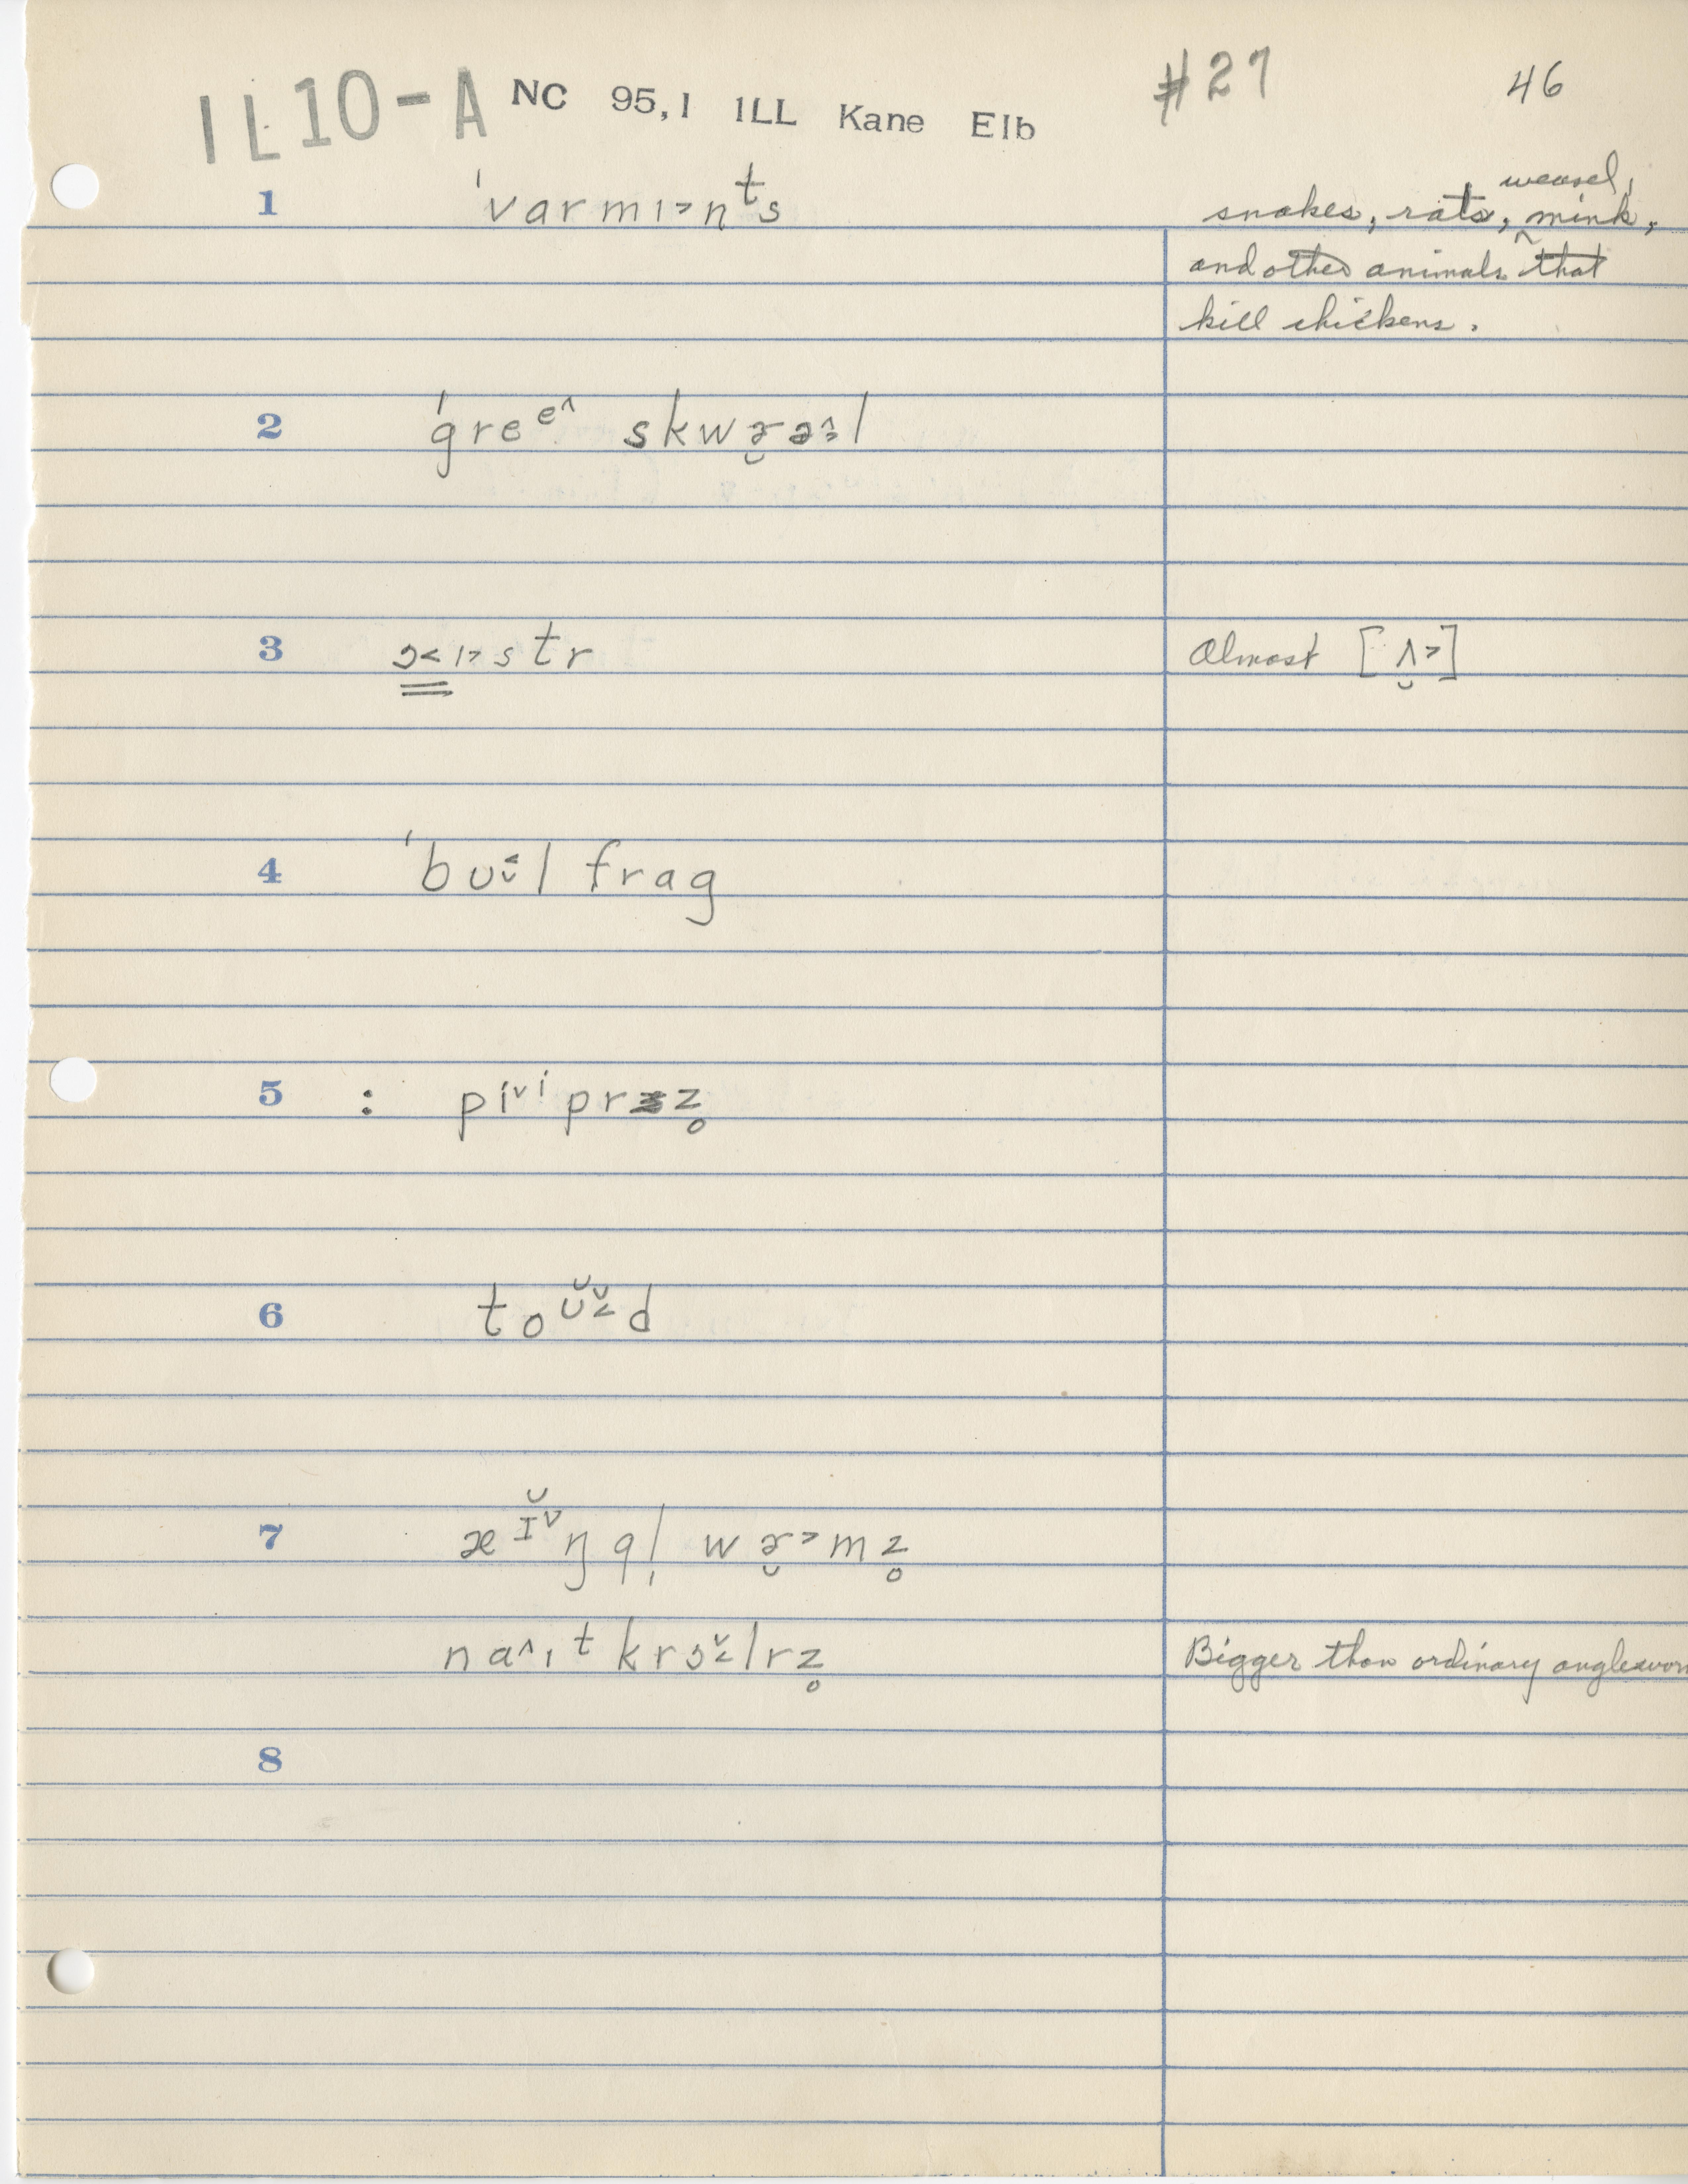 IL10-A NC 95,1 ILL Kane Elb #27 46
weasel,
1 ˈvarmɪ˃nᵗs snakes, rats, ^ mink,
and other animals that
kill chickens.
2 ˈgreeᵉ^ skwɚ̯ə l
3 ɔ˂ɪ˃str Almost [ʌ̯˃]
4 ˈbʊ l frag
5 : piᵛⁱprz̥
6 toʊ̆ d
7 æɪ̆ᵛŋgl̩ wɚ̯˃mz̥
na^ɪt krɔ lrz̥ Bigger than ordinary
8